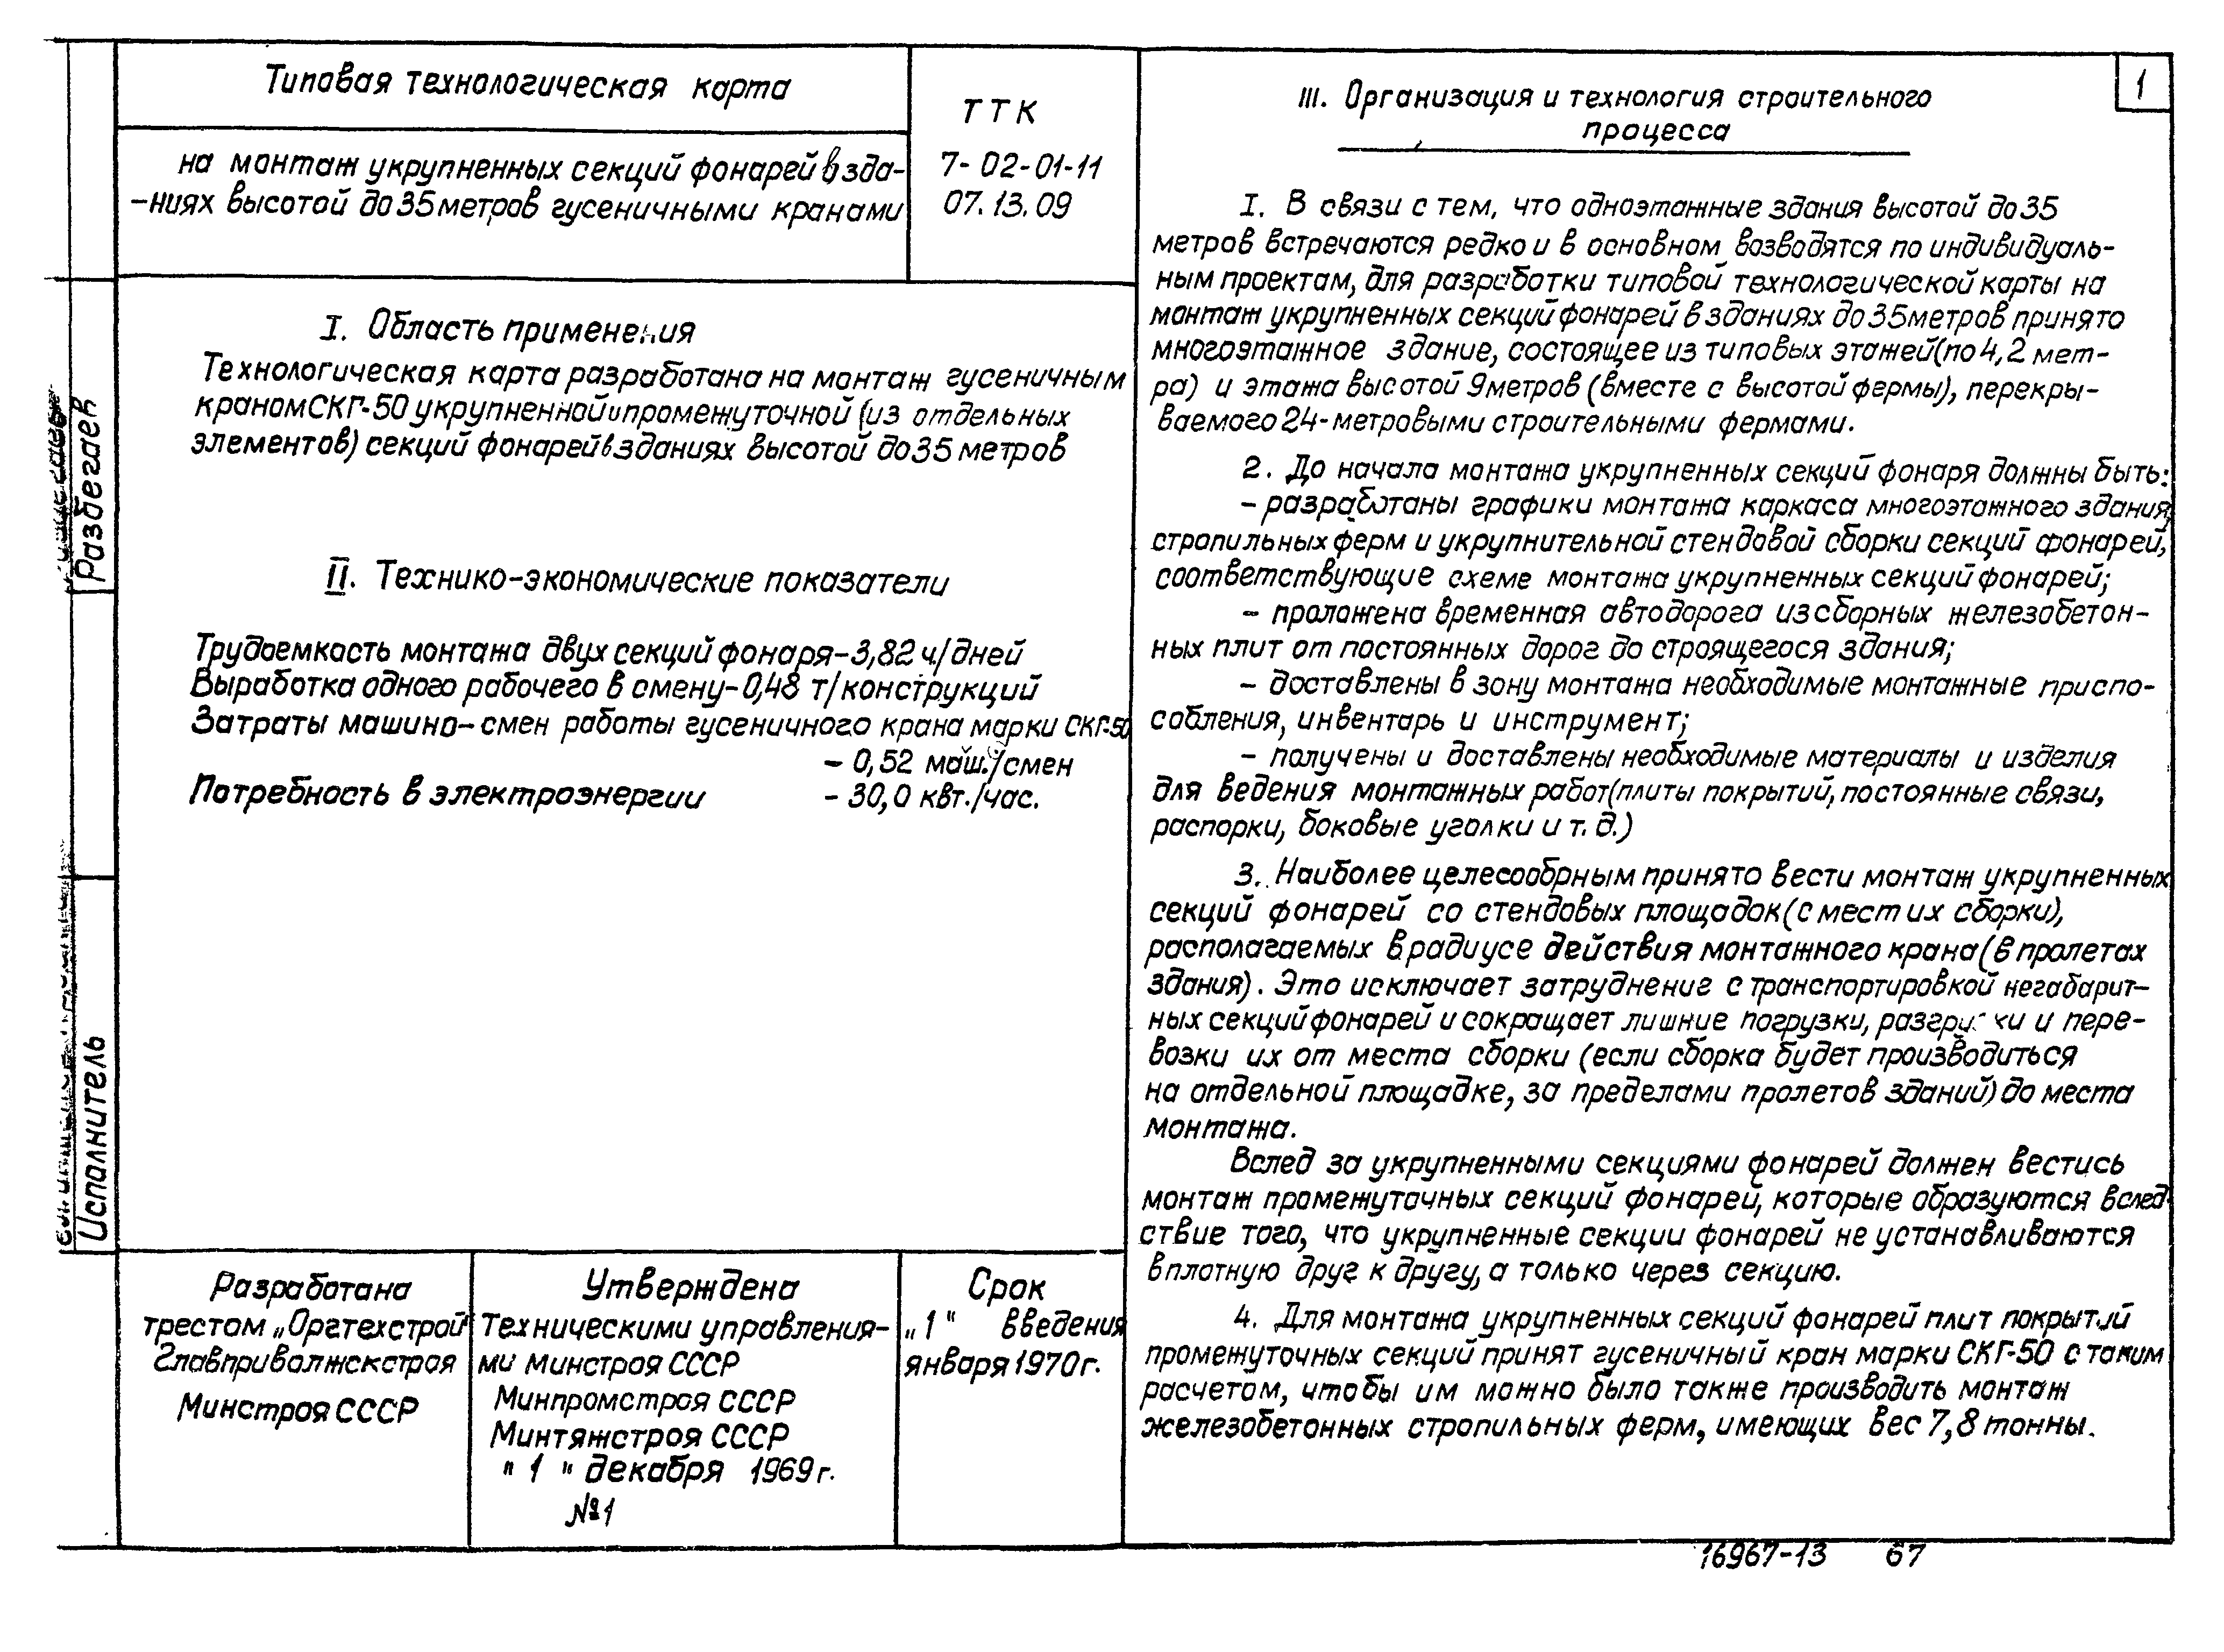 Типовая технологическая карта
на монтаж укрупненных секций фонарей в зда-
-ниях высотой до 35 метров гусеничными кранами
ТТК
7-02-01-11
07.13.09
I. Область применения
Технологическая карта разработана на монтаж гусеничным
краном СКГ-50 укрупненной и промежуточной (из отдельных
элементов) секций фонарей в зданиях высотой до 35 метров
II. Технико-экономические показатели
Трудоемкость монтажа двух секций фонаря-3,82 ч/дней
Выработка одного рабочего в смену-0,48 т/конструкций
Затраты машино-смен работы гусеничного крана марки СКГ-50
- 0,52 маш./смен
Потребность в электроэнергии - 30,0 квт./час.
Разбегаев
Исполнитель
Разработана
трестом „Оргтехстрой"
Главприволжскстроя
Минстроя СССР
Утверждена
Техническими управления-
ми Минстроя СССР
Минпромстроя СССР
Минтяжстроя СССР
" 1 " декабря 1969г.
№1
Срок
„1" введения
января 1970г.
1
III. Организация и технология строительного
процесса
I. В связи с тем, что одноэтажные здания высотой до 35
метров встречаются редко и в основном возводятся по индивидуаль-
ным проектам, для разработки типовой технологической карты на
монтаж укрупненных секций фонарей в зданиях до 35 метров принято
многоэтажное здание, состоящее из типовых этажей (по 4,2 мет-
ра) и этажа высотой 9 метров (вместе с высотой фермы), перекры-
ваемого 24-метровыми строительными фермами.
2. До начала монтажа укрупненных секций фонаря должны быть:
- разработаны графики монтажа каркаса многоэтажного здания,
стропильных ферм и укрупнительной стендовой сборки секций фонарей,
соответствующие схеме монтажа укрупненных секций фонарей;
- проложена временная автодорога из сборных железобетон-
ных плит от постоянных дорог до строящегося здания;
- доставлены в зону монтажа необходимые монтажные приспо-
собления, инвентарь и инструмент;
- получены и доставлены необходимые материалы и изделия
для ведения монтажных работ (плиты покрытий, постоянные связи,
распорки, боковые уголки и т.д.)
3. Наиболее целесообрным принято вести монтаж укрупненных
секций фонарей со стендовых площадок (с мест их сборки),
располагаемых в радиусе действия монтажного крана (в пролетах
здания). Это исключает затруднение с транспортировкой негабарит-
ных секций фонарей и сокращает лишние погрузки, разгрузки и пере-
возки их от места сборки (если сборка будет производиться
на отдельной площадке, за пределами пролетов зданий) до места
монтажа.
Вслед за укрупненными секциями фонарей должен вестись
монтаж промежуточных секций фонарей, которые образуются вслед-
ствие того, что укрупненные секции фонарей не устанавливаются
вплотную друг к другу, а только через секцию.
4. Для монтажа укрупненных секций фонарей плит покрытий
промежуточных секций принят гусеничный кран марки СКГ-50 с таким
расчетом, чтобы им можно было также производить монтаж
железобетонных стропильных ферм, имеющих вес 7,8 тонны.
16967-13 67